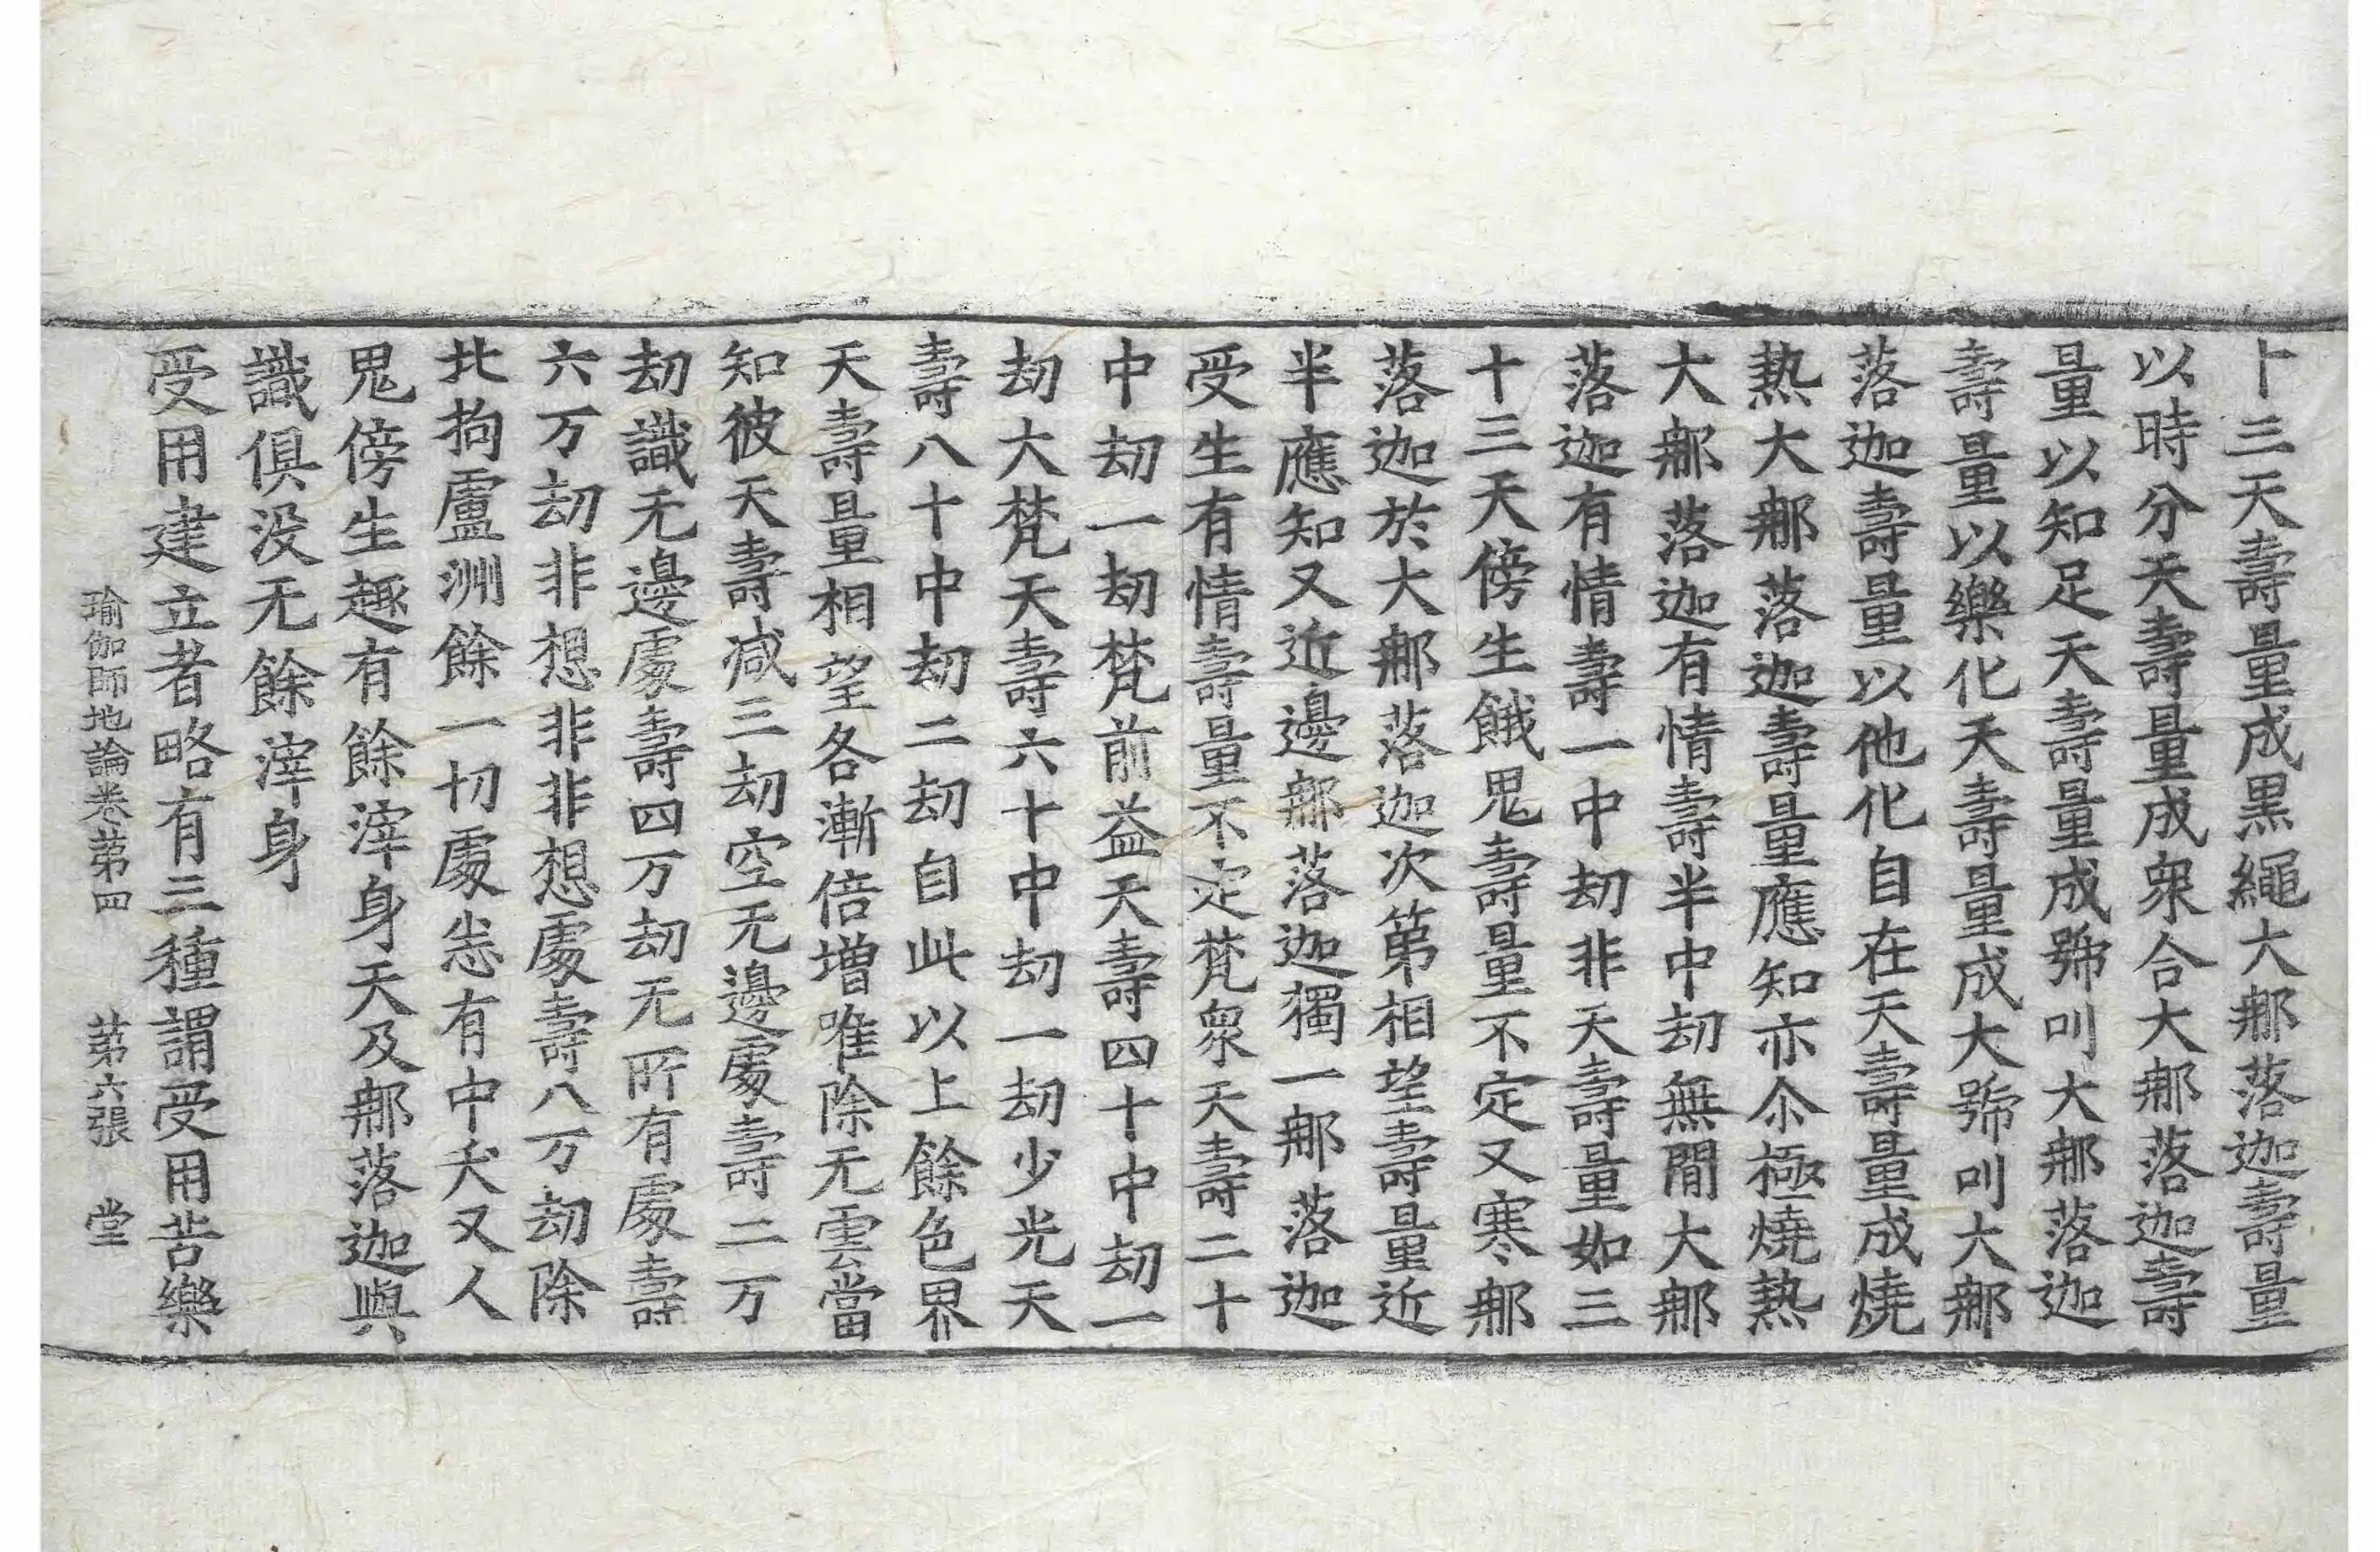 十三天壽量成黒繩大𨚗落迦壽量
以時分天壽量成衆合大𨚗落迦壽
量以知足天壽量成號叫大𨚗落迦
壽量以樂化天壽量成大號叫大𨚗
落迦壽量以他化自在天壽量成燒
熱大𨚗落迦壽量應知亦尒極燒熱
大𨚗落迦有情壽半中劫無間大𨚗
落迦有情壽一中劫非天壽量如三
十三天傍生餓鬼壽量不定又寒𨚗
落迦於大𨚗落迦次第相望壽量近
半應知又近邊𨚗落迦獨一𨚗落迦
受生有情壽量不定梵衆天壽二十
中劫一劫梵前益天壽四十中劫一
劫大梵天壽六十中劫一劫少光天
壽八十中劫二劫自此以上餘色界
天壽量相望各漸倍增唯除无雲當
知彼天壽减三劫空无邊處壽二万
劫識无邊處壽四万劫无所有處壽
六万劫非想非非想處壽八万劫除
北拘盧洲餘一切處悉有中夭又人
鬼傍生趣有餘滓身天及𨚗落迦與
識俱没无餘滓身
受用建立者略有三種謂受用苦樂
瑜伽師地論卷苐四 苐六張 堂